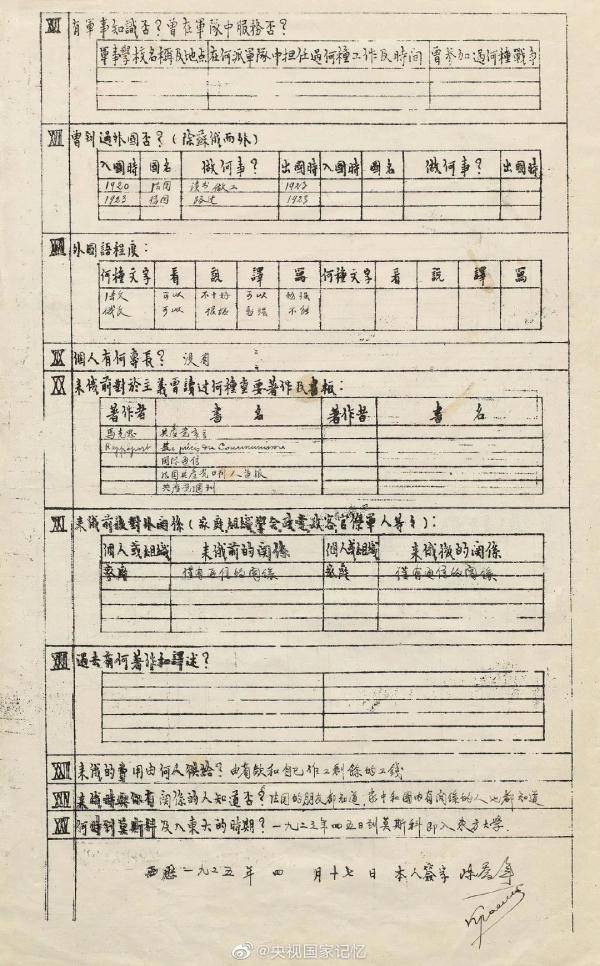 XVI 有軍事知識否?曾在軍隊中服務否?
軍事學校名稱及地点 在何派軍隊中担任過何種工作及時間 曾參加過何種戰事
XVII 曾到過外國否?(除蘇俄而外)
入國時 國名 做何事? 出國時 入國時 國名 做何事? 出國時
1920 法國 读书做工 1923
1923 德國 路过 1923
XVIII 外國語程度:
何種文字 看 説 譯 寫 何種文字 看 説 譯 寫
法文 可以 不十好 可以 勉强
俄文 可以 很坏 勉强 不能
XIX 個人有何專長? 没有
XX 来俄前對於主義曾讀过何種重要著作及書报:
著作者 書名 著作者 書名
馬克思 共産党宣言
Rappoport du Communisme
国际通信
法国共産党日刊人道报
共産党週刊
XXI 来俄前後對外関係(家庭組織學会政党政客官僚軍人等等):
個人或組織 来俄前的関係 個人或組織 来俄後的関係
家庭 僅有通信的関係 家庭 僅有通信的関係
XXII 過去有何著作和譯述?
XXIII 来俄的費用由何人供給? 由有飲和自己作工剩餘的工錢
XXIV 来俄時與你有関係的人知道否? 法国的朋友都知道,家中和國内有関係的人也都知道
XXV 何時到莫斯科及入東大的時期? 一九二三年四五日到莫斯科即入东方大学.
西歷一九二五年 四 月十七日 本人簽字 陈
@央视国家记忆